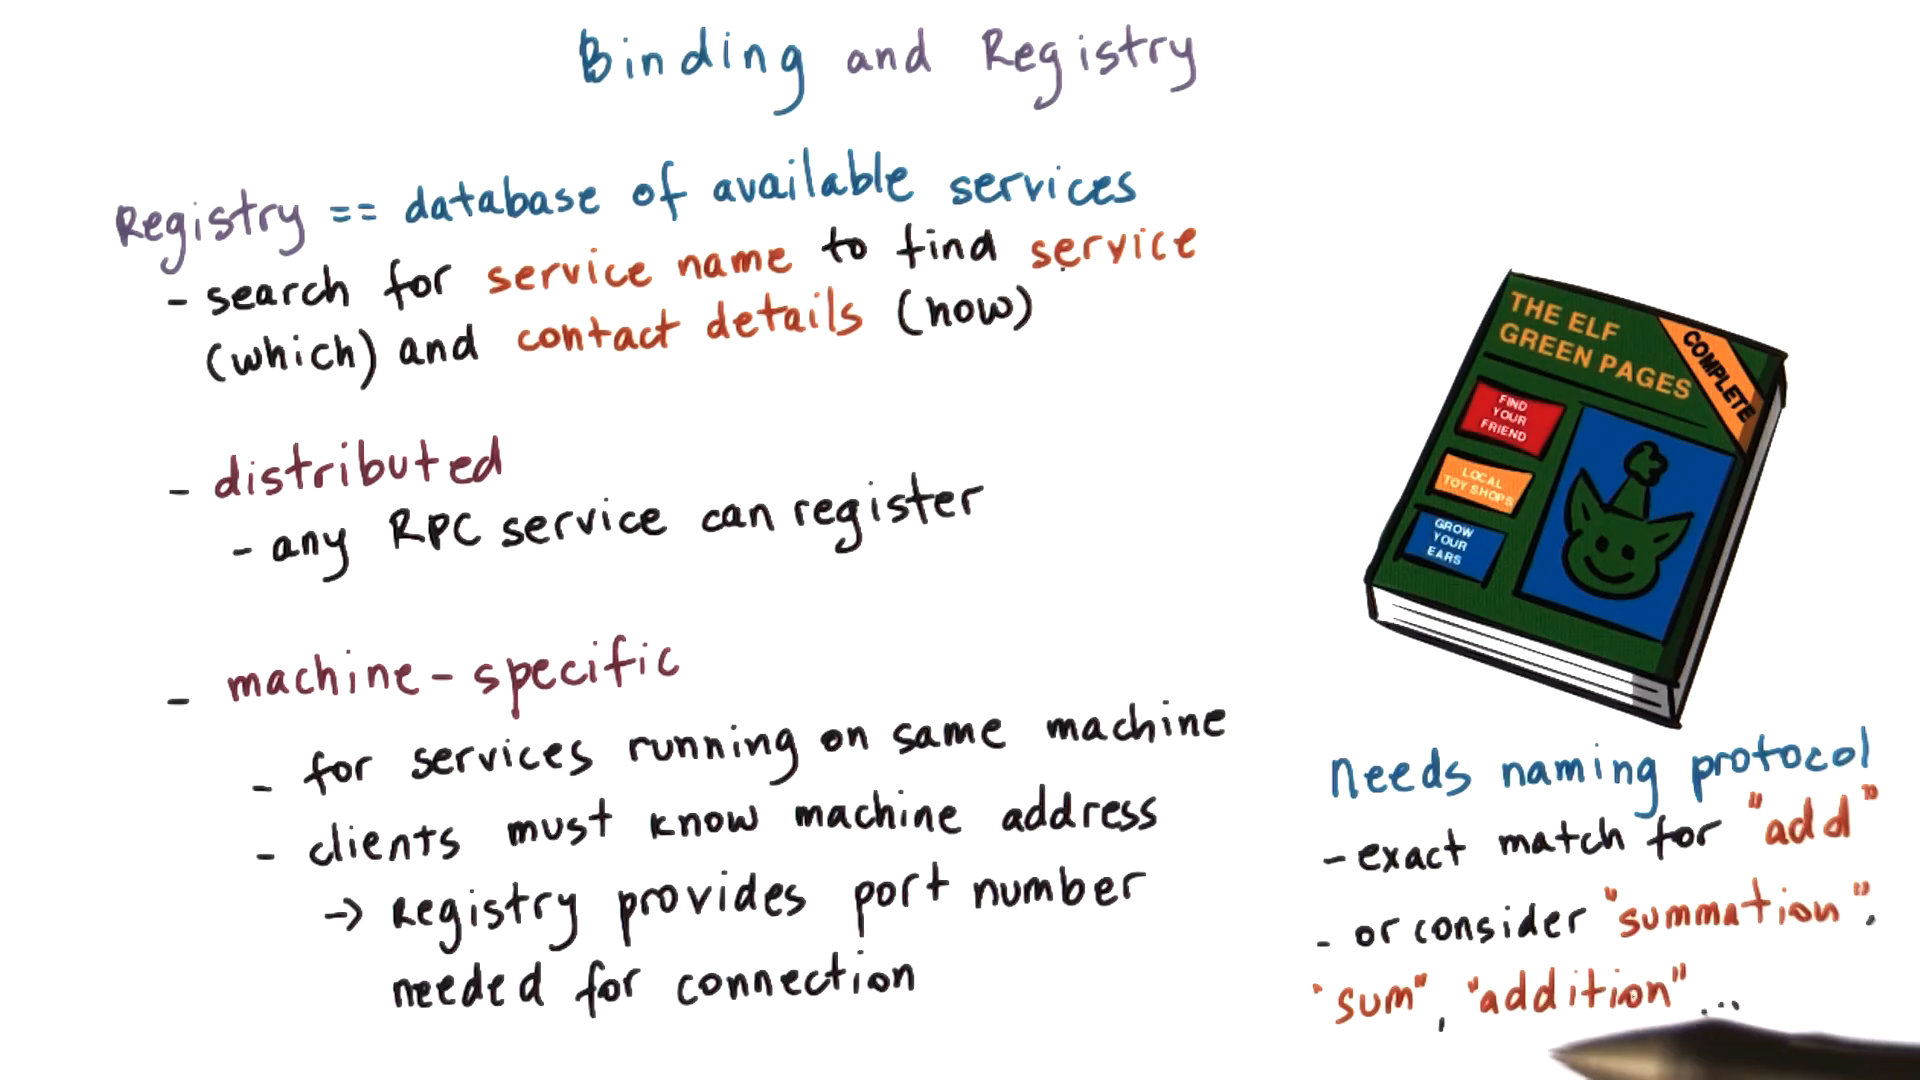 Binding and Registry
Registry == database of available services
- search for service name to find service
(which) and contact details (how)
- distributed
- any RPC service can register
- machine-specific
- for services running on same machine
- clients must know machine address
-> Registry provides port number
needed for connection
THE ELF
GREEN PAGES
COMPLETE
FIND
YOUR
FRIEND
LOCAL
TOY SHOPS
GROW
YOUR
EARS
Needs naming protocol
- exact match for "add"
- or consider "summation",
"sum", "addition"...